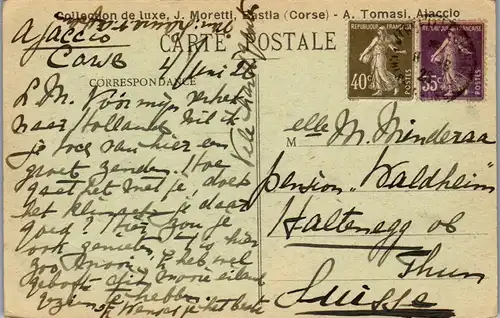 Collection de luxe, J. Moretti, Bastia (Corse) - A. Tomasi, Ajaccio
CARTE POSTALE
CORRESPONDANCE
REPUBLIQUE FRANÇAISE
40c
POSTES
REPUBLIQUE FRANÇAISE
35c
POSTES
Ajaccio
Corse
L. M. Voor mijn vertrek
naar Holland wil ik
je toch van hier een
groet zenden. Hoe
gaat het met je, doet
het klimaat je daar
goed? Hier zou je
ook genieten, 't is hier
zoo mooi. Ik heb veel
mooie eiland
gezien te hebben.
je het beste
M
elle M. Minderaa
pension "Waldheim"
Haltenegg ob
Thun
Suisse